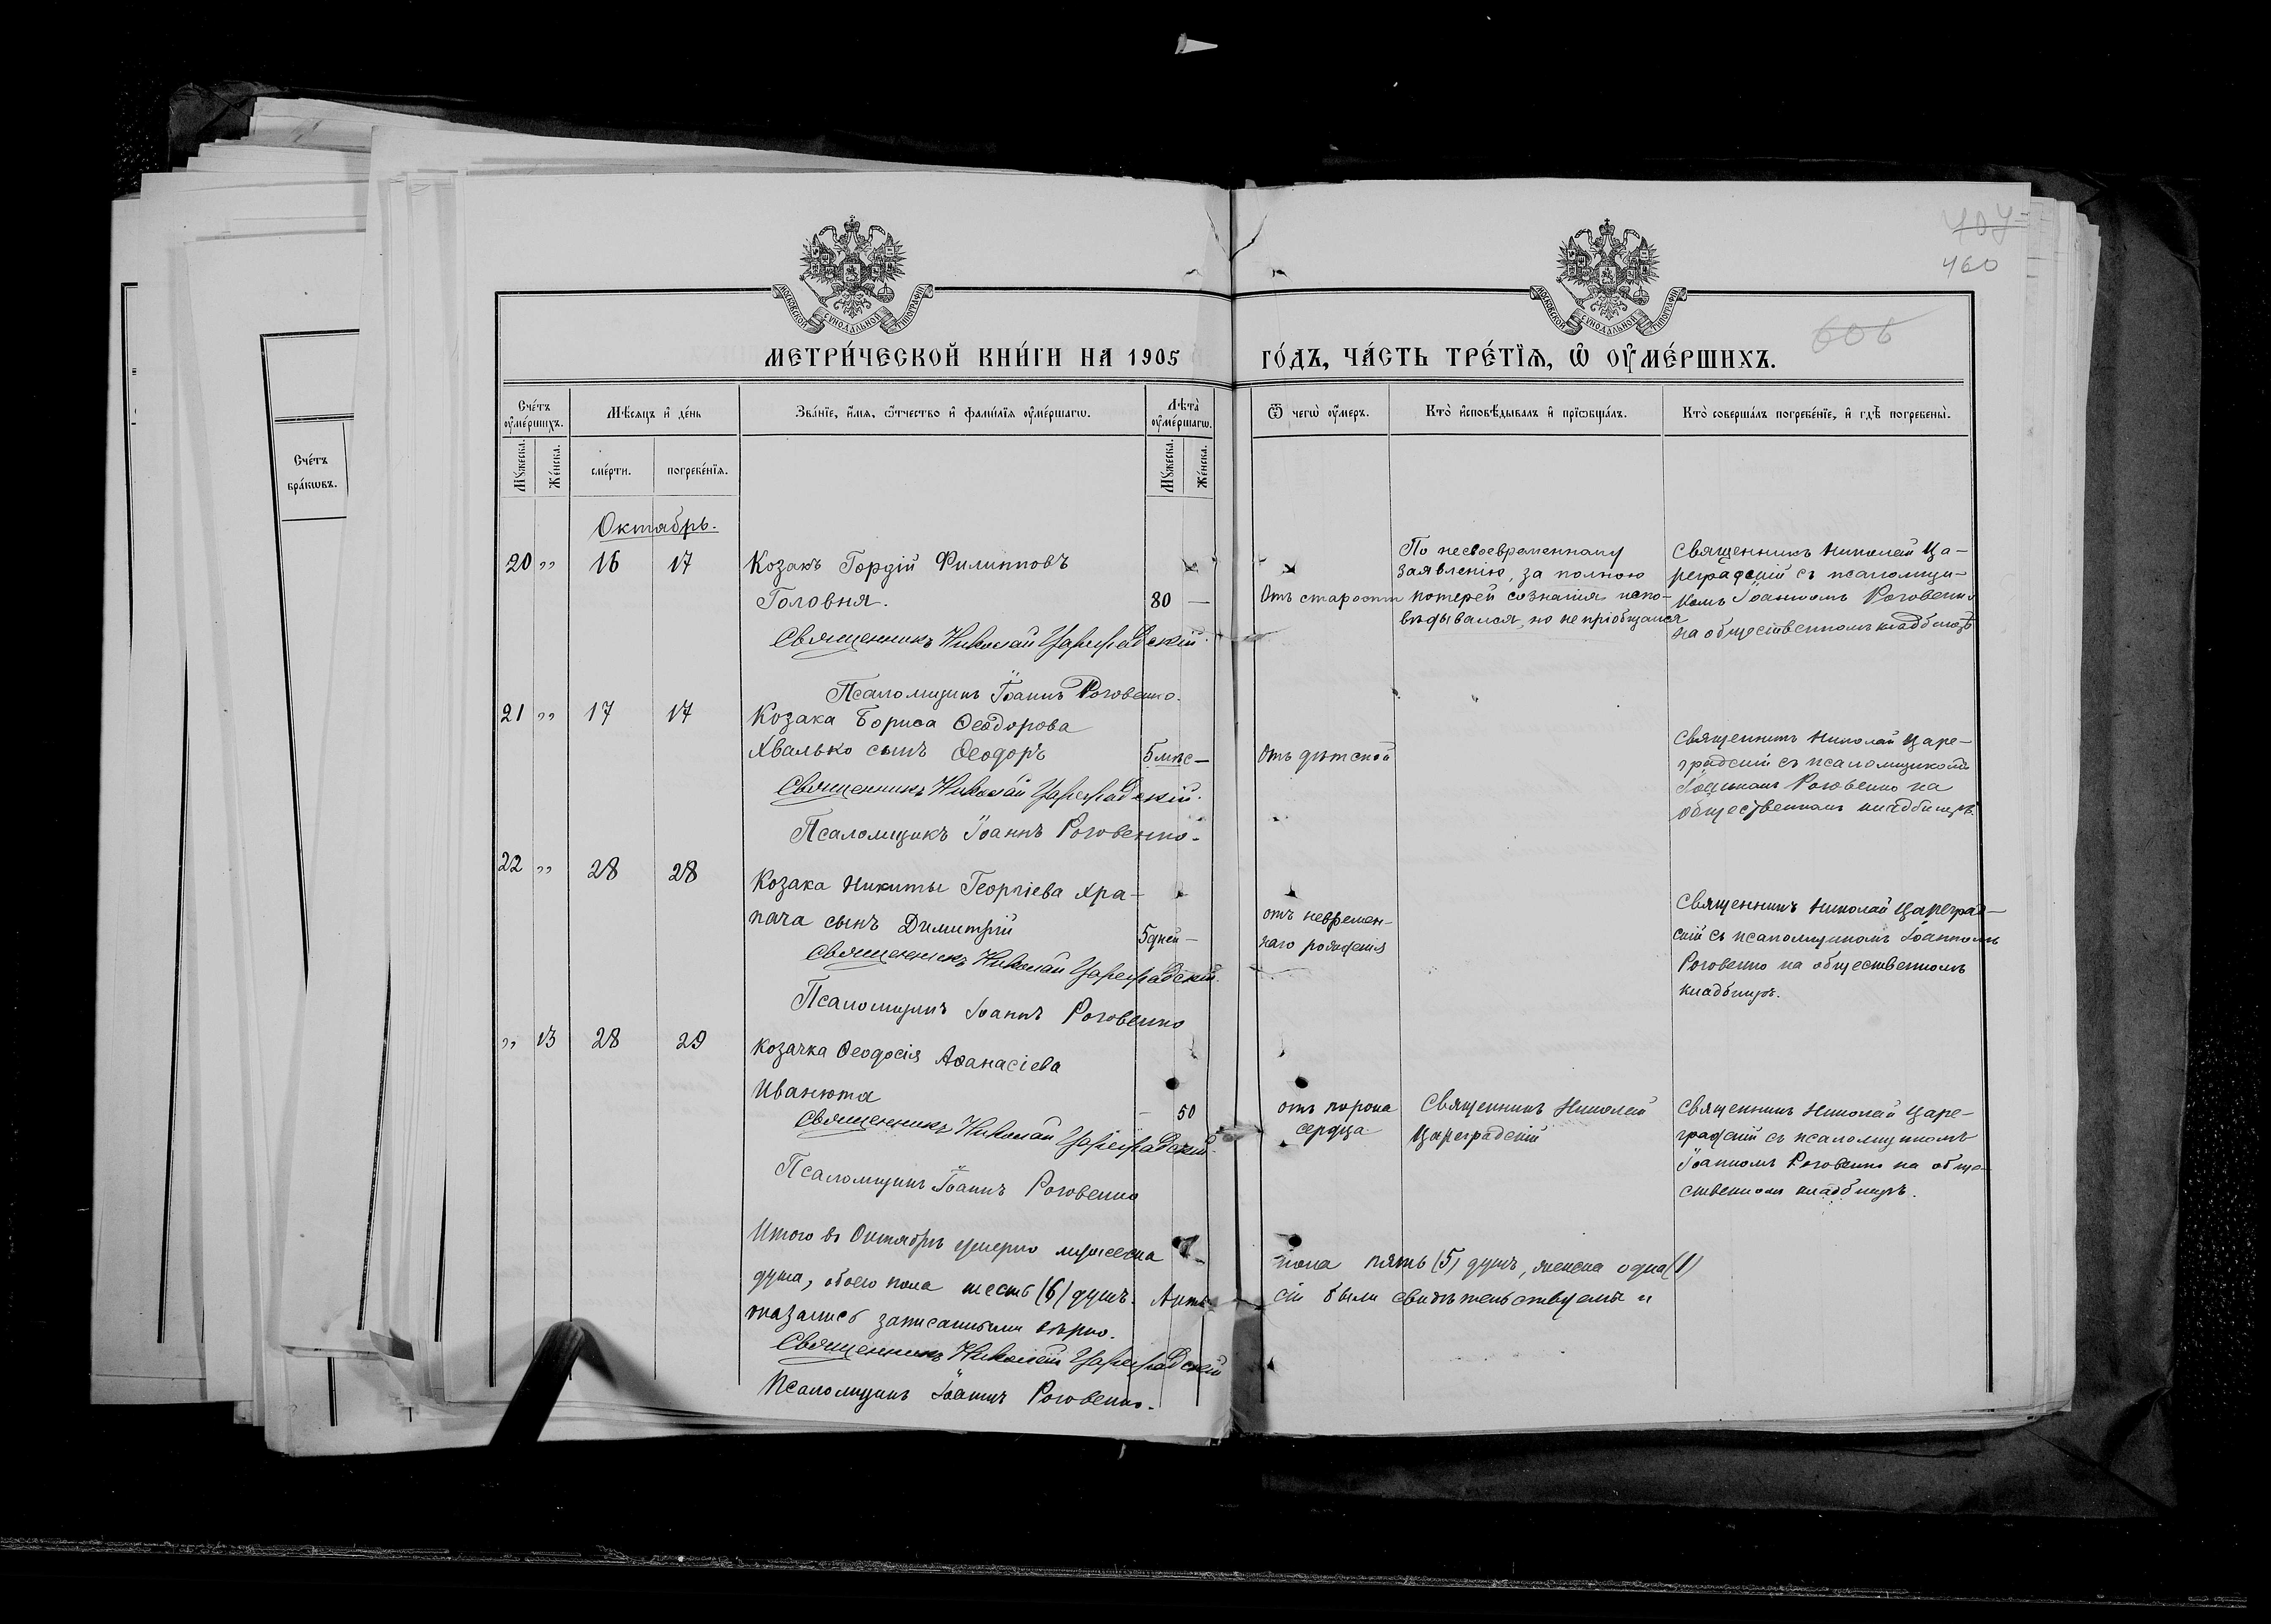 МОСКОВСКОЙ СУНОДАЛЬНОЙ ТИПОГРАФІИ
МОСКОВСКОЙ СУНОДАЛЬНОЙ ТИПОГРАФІИ
707
460
606
МЕТРИ́ЧЕСКОЙ КНИ́ГИ НА 1905
ГО́ДЪ, ЧА́СТЬ ТРЕ́ТЇѦ, Ѡ҆ ОУ҆МЕ́РШИХЪ.
Сче́тъ оу҆ме́ршихъ.
Мѣ́сѧцъ и҆ де́нь
Зва́нїе, и҆́мѧ, ѻ҆́тчество и҆ фами́лїѧ оу҆ме́ршагѡ.
Лѣта̀ оу҆ме́ршагѡ.
Ѿ чегѡ̀ оу҆́меръ.
Кто̀ и҆сповѣ́дывалъ и҆ прїѡбща́лъ.
Кто̀ соверша́лъ погребе́нїе, и҆ гдѣ̀ погребены̀.
Мꙋ́жеска.
Же́нска.
сме́рти.
погребе́нїѧ.
Мꙋ́жеска.
Же́нска.
Сче́тъ
бра́кѡвъ.
Октябрь.
20 " 16 17 Козакъ Гордій Филипповъ
Головня. 80 —
Священникъ Николай Цареградскій.
Псаломщикъ Іоаннъ Роговенко.
Отъ старости
По несвоевременному
заявленію, за полною
потерей сознанія испо-
вѣдывался, но не пріобщался
Священникъ Николай Ца-
реградскій съ псаломщи-
комъ Іоанномъ Роговенко
на общественномъ кладбищѣ
21 " 17 17 Козака Бориса Ѳеодорова
Хвалько сынъ Ѳеодоръ 5 мѣс —
Священникъ Николай Цареградскій.
Псаломщикъ Іоаннъ Роговенко.
Отъ дѣтской
Священникъ Николай Царе-
градскій съ псаломщикомъ
Іоанномъ Роговенко на
общественномъ кладбищѣ.
22 " 28 28 Козака Никиты Георгіева Хра-
пача сынъ Димитрій 5 дней —
Священникъ Николай Цареградскій.
Псаломщикъ Іоаннъ Роговенко
отъ невремен-
наго рожденія
Священникъ Николай Цареград-
скій съ псаломщикомъ Іоанномъ
Роговенко на общественномъ
кладбищѣ.
" 13 28 29 Козачка Ѳеодосія Аѳанасіева
Иванюта — 50
Священникъ Николай Цареградскій.
Псаломщикъ Іоаннъ Роговенко
отъ порока
сердца
Священникъ Николай
Цареградскій
Священникъ Николай Царе-
градскій съ псаломщикомъ
Іоанномъ Роговенко на обще-
ственномъ кладбищѣ.
Итого въ Октябрѣ умерло мужеска пола пять (5) душъ, женска одна (1)
душа, обоего пола шесть (6) душъ. Акты сіи были свидѣтельствуемы и
оказались записанными вѣрно.
Священникъ Николай Цареградскій
Псаломщикъ Іоаннъ Роговенко.